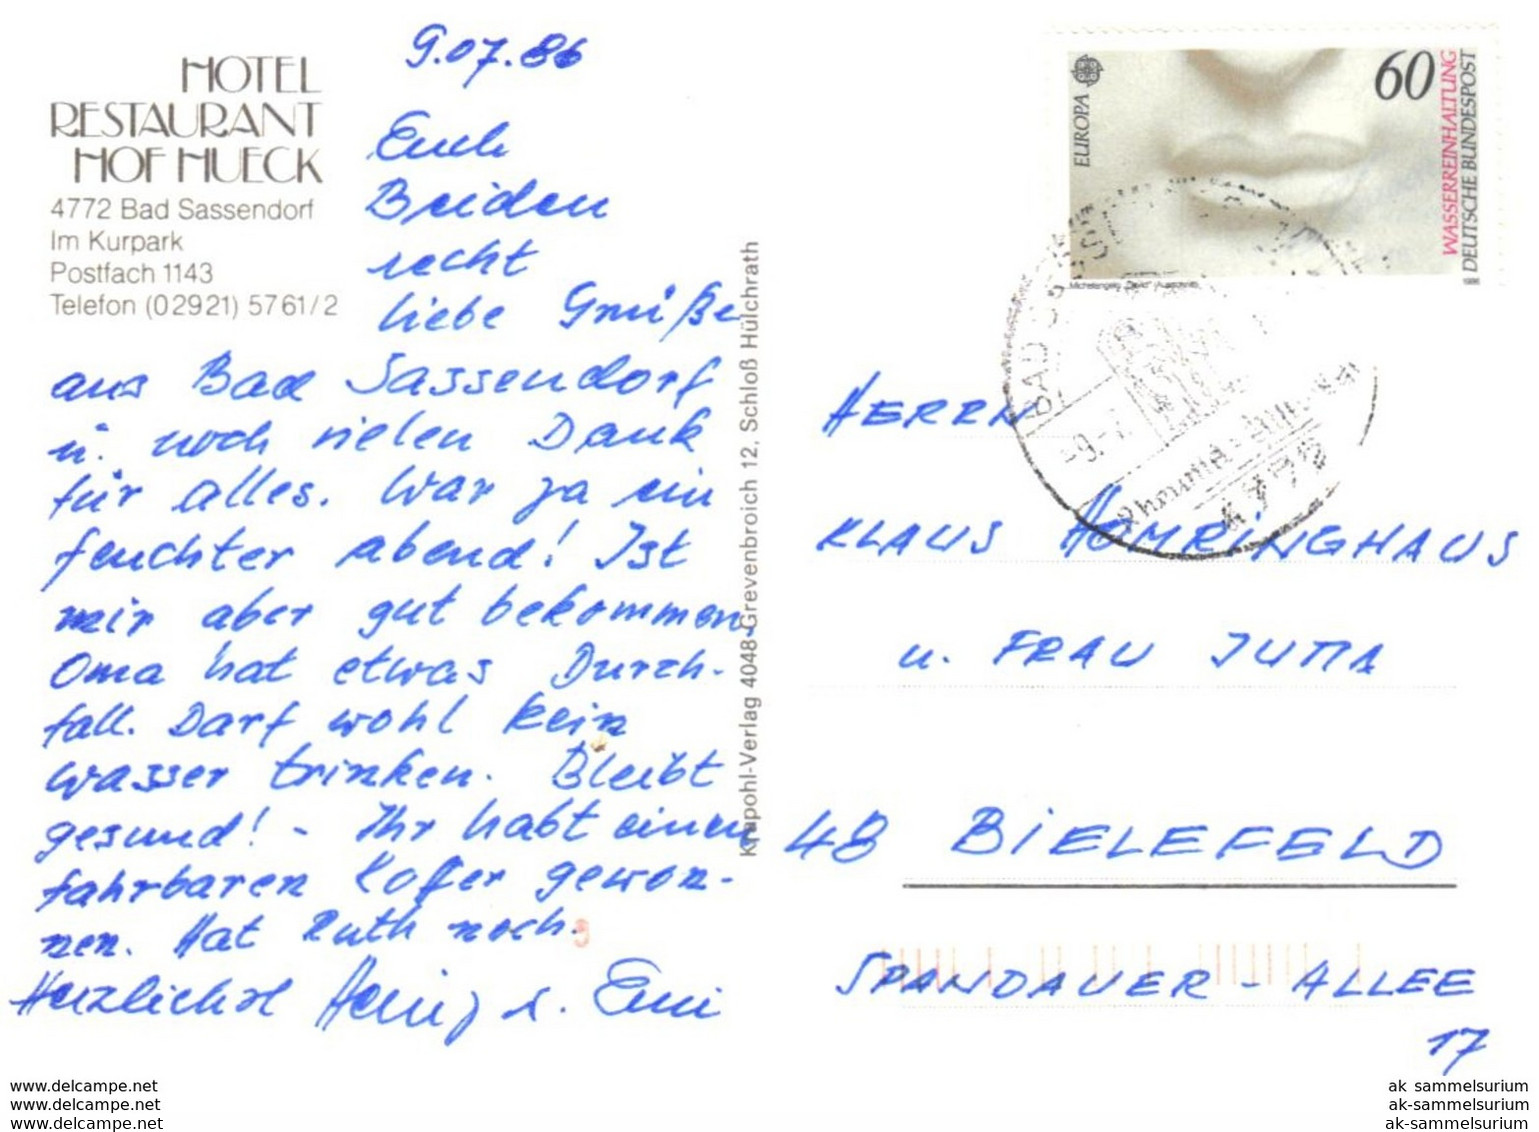 HOTEL
RESTAURANT
HOF HUECK
4772 Bad Sassendorf
Im Kurpark
Postfach 1143
Telefon (02921) 5761/2
9.07.86
Euch
Beiden
recht
liebe Grüße
aus Bad Sassendorf
u. noch vielen Dank
für alles. War ja ein
feuchter abend! Ist
mir aber gut bekommen,
Oma hat etwas Durch-
fall. Darf wohl kein
wasser trinken. Bleibt
gesund! - Ihr habt einen
fahrbaren Koffer gewon-
nen. Hat Ruth noch.
Herzlichst Heinz u. Emi
Krapohl-Verlag 4048 Grevenbroich 12, Schloß Hülchrath
EUROPA
60
WASSERREINHALTUNG
DEUTSCHE BUNDESPOST
Michelangelo "David" (Ausschnitt)
BAD
-9.-7
4772
HERRN
KLAUS HOMRINGHAUS
u. FRAU JUTTA
48 BIELEFELD
SPANDAUER - ALLEE
17
www.delcampe.net
www.delcampe.net
www.delcampe.net
ak_sammelsurium
ak-sammelsurium
ak-sammelsurium